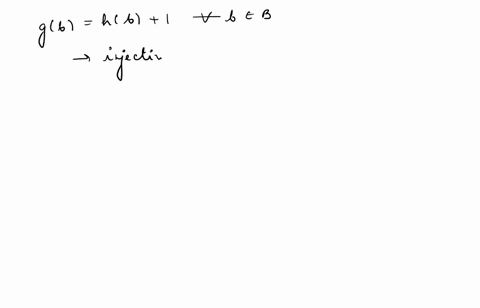 g(b) = h(b) + 1 ∀ b ∈ B
→ injectiv